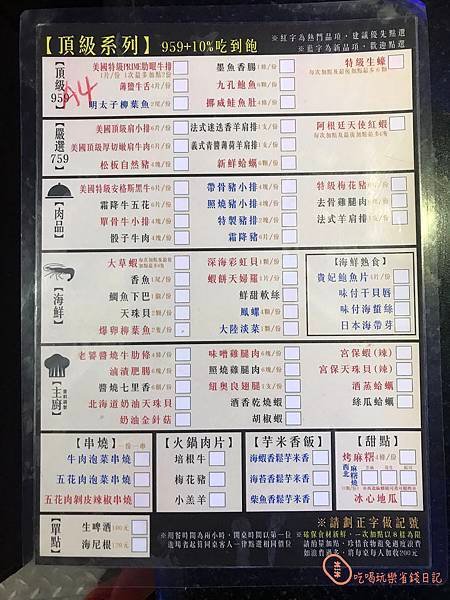 【頂級系列】 959+10%吃到飽
※紅字為熱門品項，建議優先點選
※藍字為新品項，歡迎點選
【頂級】959
A4
美國特級PRIME肋眼牛排
1片/份 1次最多加點2份
薄鹽牛舌4片/份
明太子柳葉魚2尾/份
墨魚香腸1條/份
九孔鮑魚6顆/份
挪威鮭魚肚4條/份
特級生蠔
【嚴選】759
美國頂級肩小排4片/份
美國頂級厚切嫩肩牛肉4片/份
松板自然豬4塊/份
法式迷迭香羊肩排1支/份
義式青醬薄荷羊肩排1支/份
新鮮蛤蠣6顆/份
阿根廷天使紅蝦
【肉品】
美國特級安格斯黑牛6片/份
霜降牛五花6片/份
單骨牛小排4片/份
骰子牛肉4塊/份
帶骨豬小排4塊/份
照燒豬小排4塊/份
特製豬排2片/份
霜降豬6片/份
特級梅花豬6片/份
去骨雞腿肉6塊/份
法式羊肩排1片/份
【海鮮】
大草蝦
香魚1尾/份
鯛魚下巴1個/份
天珠貝2顆/份
爆卵柳葉魚2尾/份
深海彩虹貝1顆/份
蝦餅天婦羅1片/份
鮮甜軟絲
鳳螺4顆/份
大陸淡菜1顆/份
【海鮮熟食】
貴妃鮑魚片4片/份
味付干貝唇
味付海蜇絲
日本海帶芽
【主廚】
老饕醬燒牛肋條4條/份
滷漬肥腸6塊/份
醬燒七里香6個/份
北海道奶油天珠貝
奶油金針菇
味噌雞腿肉6塊/份
照燒雞腿肉6塊/份
紐奧良翅腿1支/份
酒香乾燒蝦
胡椒蝦
宮保蝦(辣)
宮保天珠貝(辣)
酒蒸蛤蠣
絲瓜蛤蠣
【串燒】一份一串
牛肉泡菜串燒
五花肉泡菜串燒
五花肉剝皮辣椒串燒
【火鍋肉片】
培根牛
梅花豬
小羔羊
【芋米香飯】
海蝦香鬆芋米香
海苔香鬆芋米香
柴魚香鬆芋米香
【甜點】
烤麻糬4條/份
西北麻糬燒
冰心地瓜
【單點】
生啤酒100元
海尼根120元
※用餐時間為兩小時，開桌時間以第一位
進場者起算同桌客人一律點選相同價位
※請劃正字做記號
※確保食材新鮮，一次加點以8樣為限
請酌量加點，珍惜食物避免過度浪費
如浪費過多，將每桌每人加收200元
吃喝玩樂省錢日記